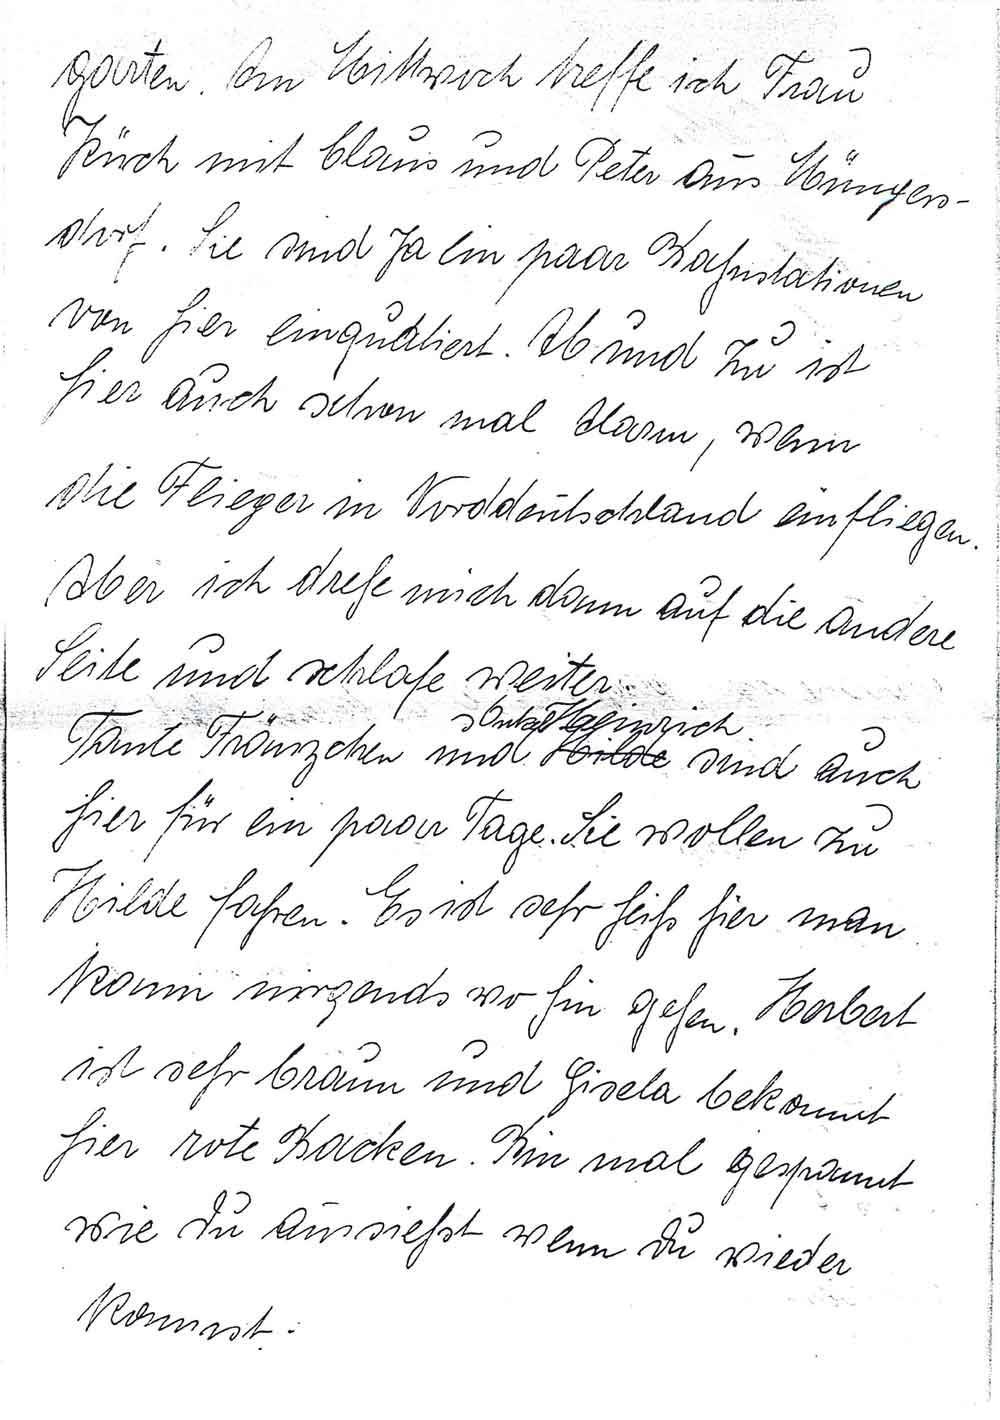 garten. Am Mittwoch treffe ich Frau
Kürch mit Claus und Peter aus Müngers-
dorf. Sie sind ja ein paar Bahnstationen
von hier einqudtiert. Ab und zu ist
hier auch schon mal Alarm, wenn
die Flieger in Norddeutschland einfliegen.
Aber ich drehe mich dann auf die andere
Seite und schlafe weiter.
Onkel Heinrich
Tante Fränzchen und Hilde sind auch
hier für ein paar Tage. Sie wollen zu
Hilde fahren. Es ist sehr heiß hier man
kann nirgends wo hin gehen. Herbert
ist sehr braun und Gisela bekommt
hier rote Backen. Bin mal gespannt
wie du aussiehst wenn du wieder
kommst.